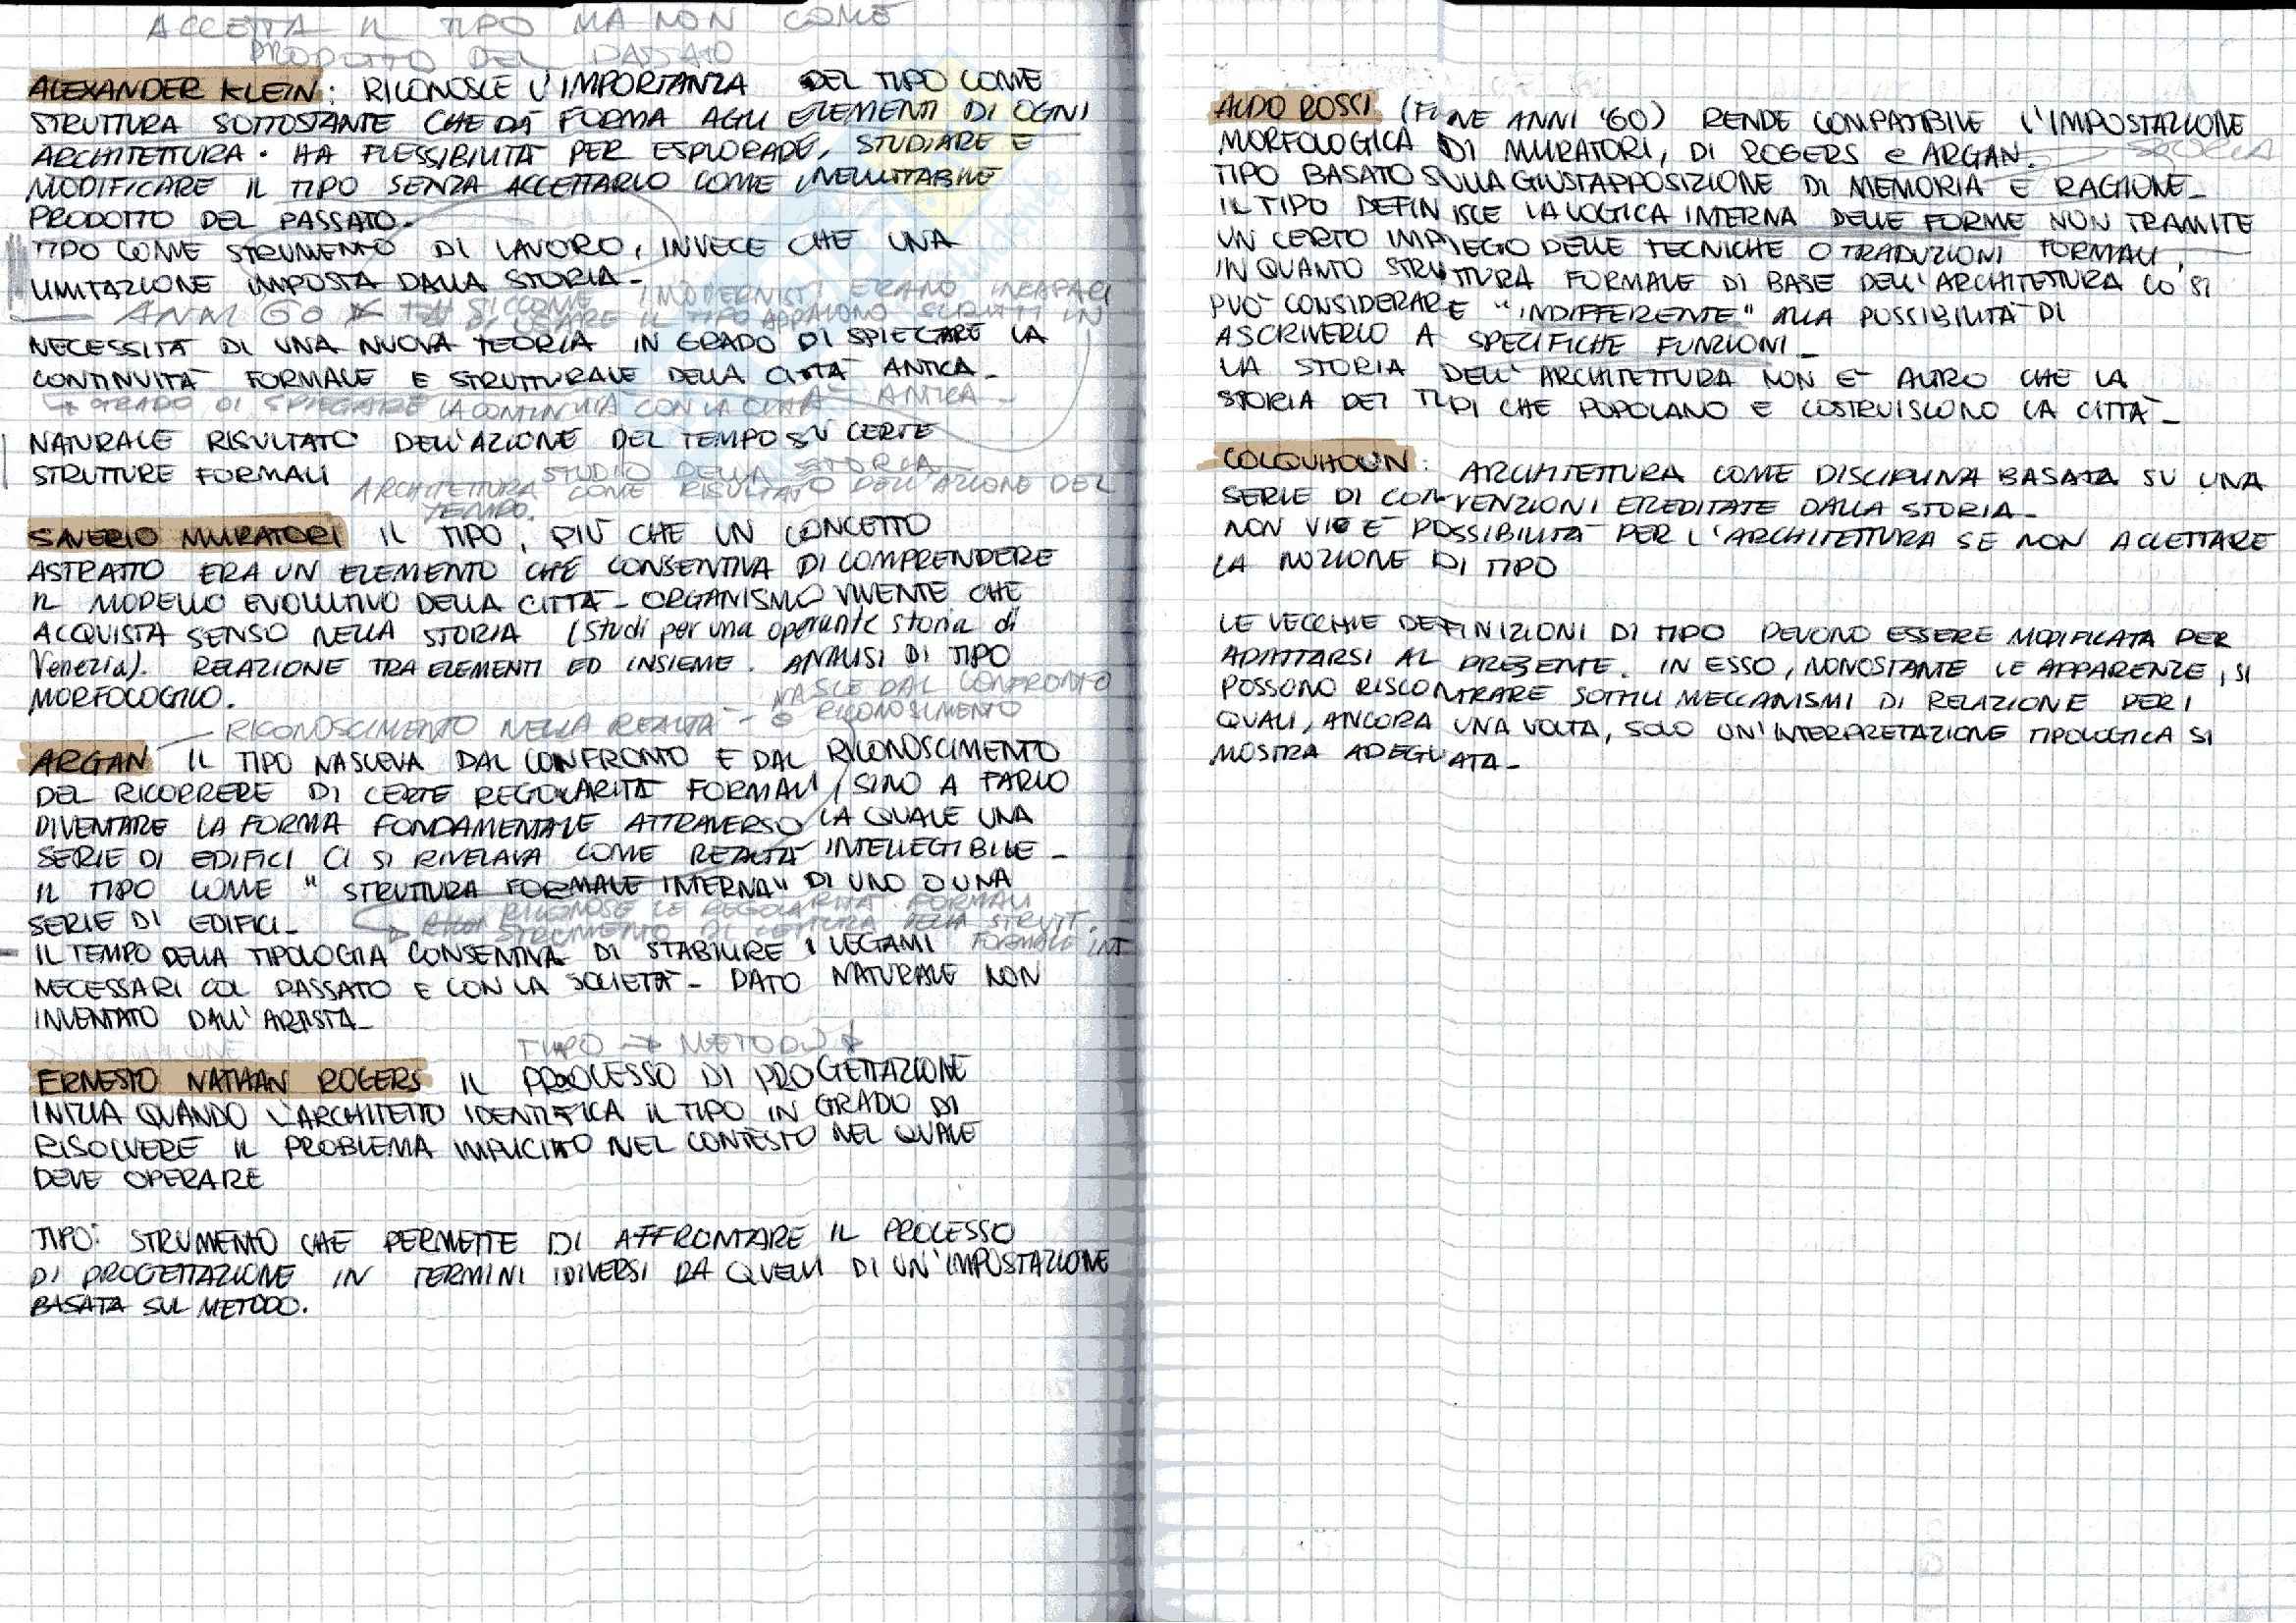 ACCETTA IL TIPO MA NON COME
PRODOTTO DEL PASSATO
ALEXANDER KLEIN: RICONOSCE L'IMPORTANZA DEL TIPO COME
STRUTTURA SOTTOSTANTE CHE DÀ FORMA AGLI ELEMENTI DI OGNI
ARCHITETTURA. HA FLESSIBILITÀ PER ESPLORARE, STUDIARE E
MODIFICARE IL TIPO SENZA ACCETTARLO COME INELUTTABILE
PRODOTTO DEL PASSATO.
TIPO COME STRUMENTO DI LAVORO, INVECE CHE UNA
LIMITAZIONE IMPOSTA DALLA STORIA_
ANNI 60 SICCOME I MODERNISTI ERANO INCAPACI
DI USARE IL TIPO APPAIONO SCRITTI IN
NECESSITÀ DI UNA NUOVA TEORIA IN GRADO DI SPIEGARE LA
CONTINUITÀ FORMALE E STRUTTURALE DELLA CITTÀ ANTICA_
↳ GRADO DI SPIEGARE LA CONTINUITÀ CON LA CITTÀ ANTICA_
NATURALE RISULTATO DELL'AZIONE DEL TEMPO SU CERTE
STRUTTURE FORMALI
STUDIO DELLA STORIA_
ARCHITETTURA COME RISULTATO DELL'AZIONE DEL
TEMPO.
SAVERIO MURATORI IL TIPO, PIÙ CHE UN CONCETTO
ASTRATTO ERA UN ELEMENTO CHE CONSENTIVA DI COMPRENDERE
IL MODELLO EVOLUTIVO DELLA CITTÀ_ ORGANISMO VIVENTE CHE
ACQUISTA SENSO NELLA STORIA (Studi per una operante storia di
Venezia). RELAZIONE TRA ELEMENTI ED INSIEME. ANALISI DI TIPO
MORFOLOGICO.
NASCE DAL CONFRONTO
RICONOSCIMENTO NELLA REALTÀ - RICONOSCIMENTO
ARGAN IL TIPO NASCEVA DAL CONFRONTO E DAL RICONOSCIMENTO
DEL RICORRERE DI CERTE REGOLARITÀ FORMALI, SINO A FARLO
DIVENTARE LA FORMA FONDAMENTALE ATTRAVERSO LA QUALE UNA
SERIE DI EDIFICI CI SI RIVELAVA COME REALTÀ INTELLEGIBILE_
IL TIPO COME "STRUTTURA FORMALE INTERNA" DI UNO O UNA
SERIE DI EDIFICI_
RICONOSCE LE REGOLARITÀ FORMALI
STRUMENTO DI LETTURA DELLA STRUTT.
FORMALE INT
IL TEMPO DELLA TIPOLOGIA CONSENTIVA DI STABILIRE I LEGAMI
NECESSARI COL PASSATO E CON LA SOCIETÀ_ DATO NATURALE NON
INVENTATO DALL'ARTISTA_
TIPO → METODO
ERNESTO NATHAN ROGERS IL PROCESSO DI PROGETTAZIONE
INIZIA QUANDO L'ARCHITETTO IDENTIFICA IL TIPO IN GRADO DI
RISOLVERE IL PROBLEMA IMPLICITO NEL CONTESTO NEL QUALE
DEVE OPERARE
TIPO: STRUMENTO CHE PERMETTE DI AFFRONTARE IL PROCESSO
DI PROGETTAZIONE IN TERMINI DIVERSI DA QUELLI DI UN'IMPOSTAZIONE
BASATA SUL METODO.
ALDO ROSSI (FINE ANNI '60) RENDE COMPATIBILE L'IMPOSTAZIONE
MORFOLOGICA DI MURATORI, DI ROGERS e ARGAN.
STORIA
TIPO BASATO SULLA GIUSTAPPOSIZIONE DI MEMORIA E RAGIONE_
IL TIPO DEFINISCE LA LOGICA INTERNA DELLE FORME NON TRAMITE
UN CERTO IMPIEGO DELLE TECNICHE O TRADUZIONI FORMALI,
IN QUANTO STRUTTURA FORMALE DI BASE DELL'ARCHITETTURA LO SI
PUÒ CONSIDERARE "INDIFFERENTE" ALLA POSSIBILITÀ DI
ASCRIVERLO A SPECIFICHE FUNZIONI_
LA STORIA DELL'ARCHITETTURA NON È ALTRO CHE LA
STORIA DEI TIPI CHE POPOLANO E COSTRUISCONO LA CITTÀ_
COLQUHOUN: ARCHITETTURA COME DISCIPLINA BASATA SU UNA
SERIE DI CONVENZIONI EREDITATE DALLA STORIA_
NON VI È POSSIBILITÀ PER L'ARCHITETTURA SE NON ACCETTARE
LA NOZIONE DI TIPO
LE VECCHIE DEFINIZIONI DI TIPO DEVONO ESSERE MODIFICATA PER
ADATTARSI AL PRESENTE. IN ESSO, NONOSTANTE LE APPARENZE, SI
POSSONO RISCONTRARE SOTTILI MECCANISMI DI RELAZIONE PER I
QUALI, ANCORA UNA VOLTA, SOLO UN'INTERPRETAZIONE TIPOLOGICA SI
MOSTRA ADEGUATA_